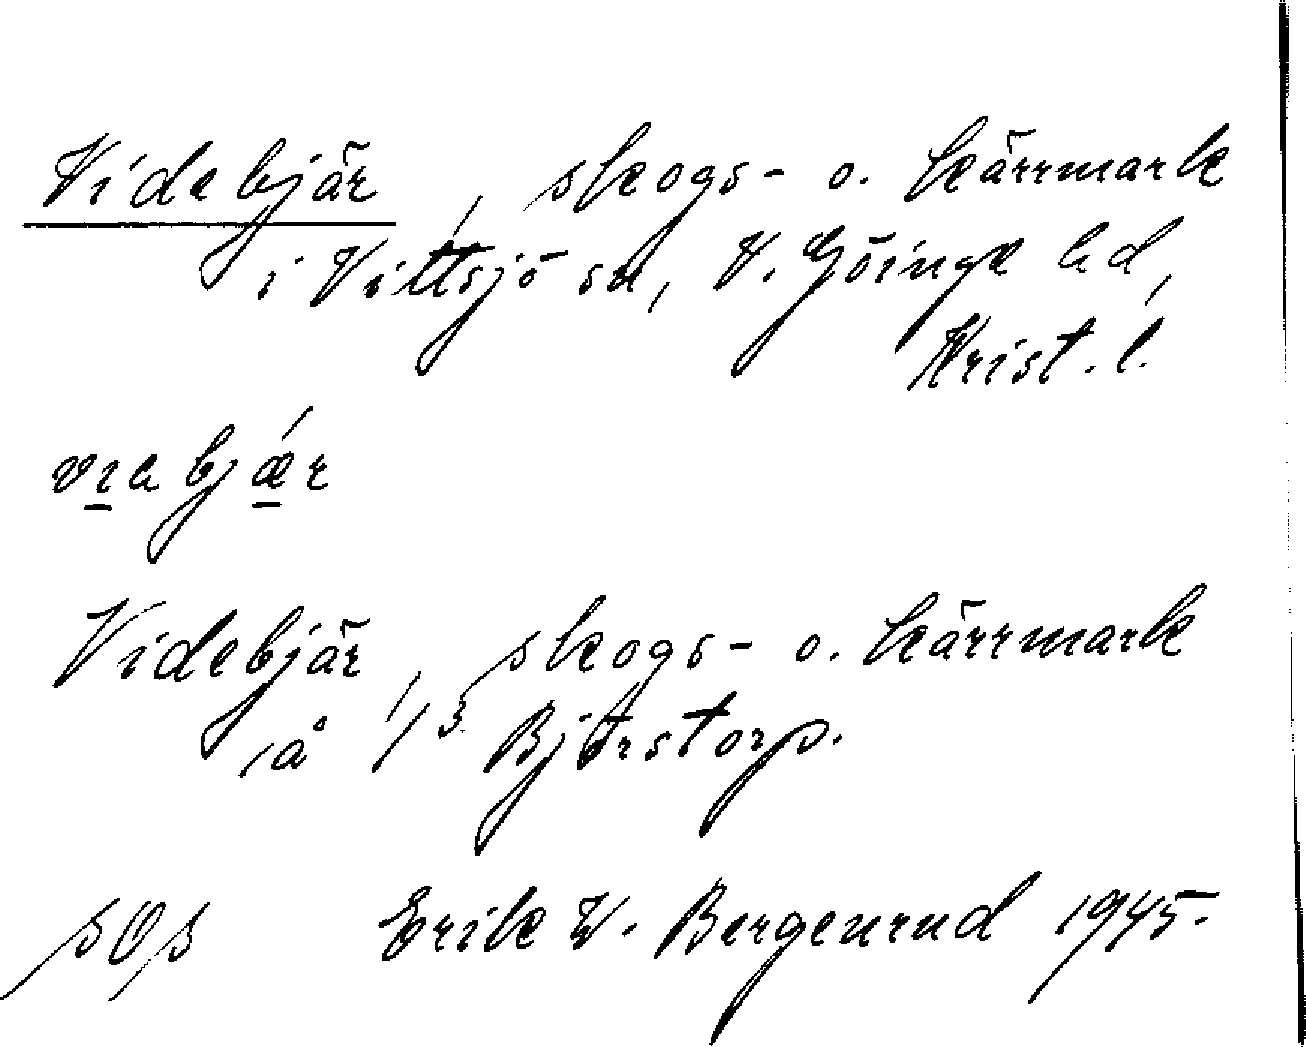 Videbjär, skogs- o. kärrmark
i Vittsjö sn, V. Göinge hd,
Krist. l.
vıabjǽr
Videbjär, skogs- o. kärrmark
å 1/3 Björstorp.
Erik W. Bergenrud 1945.